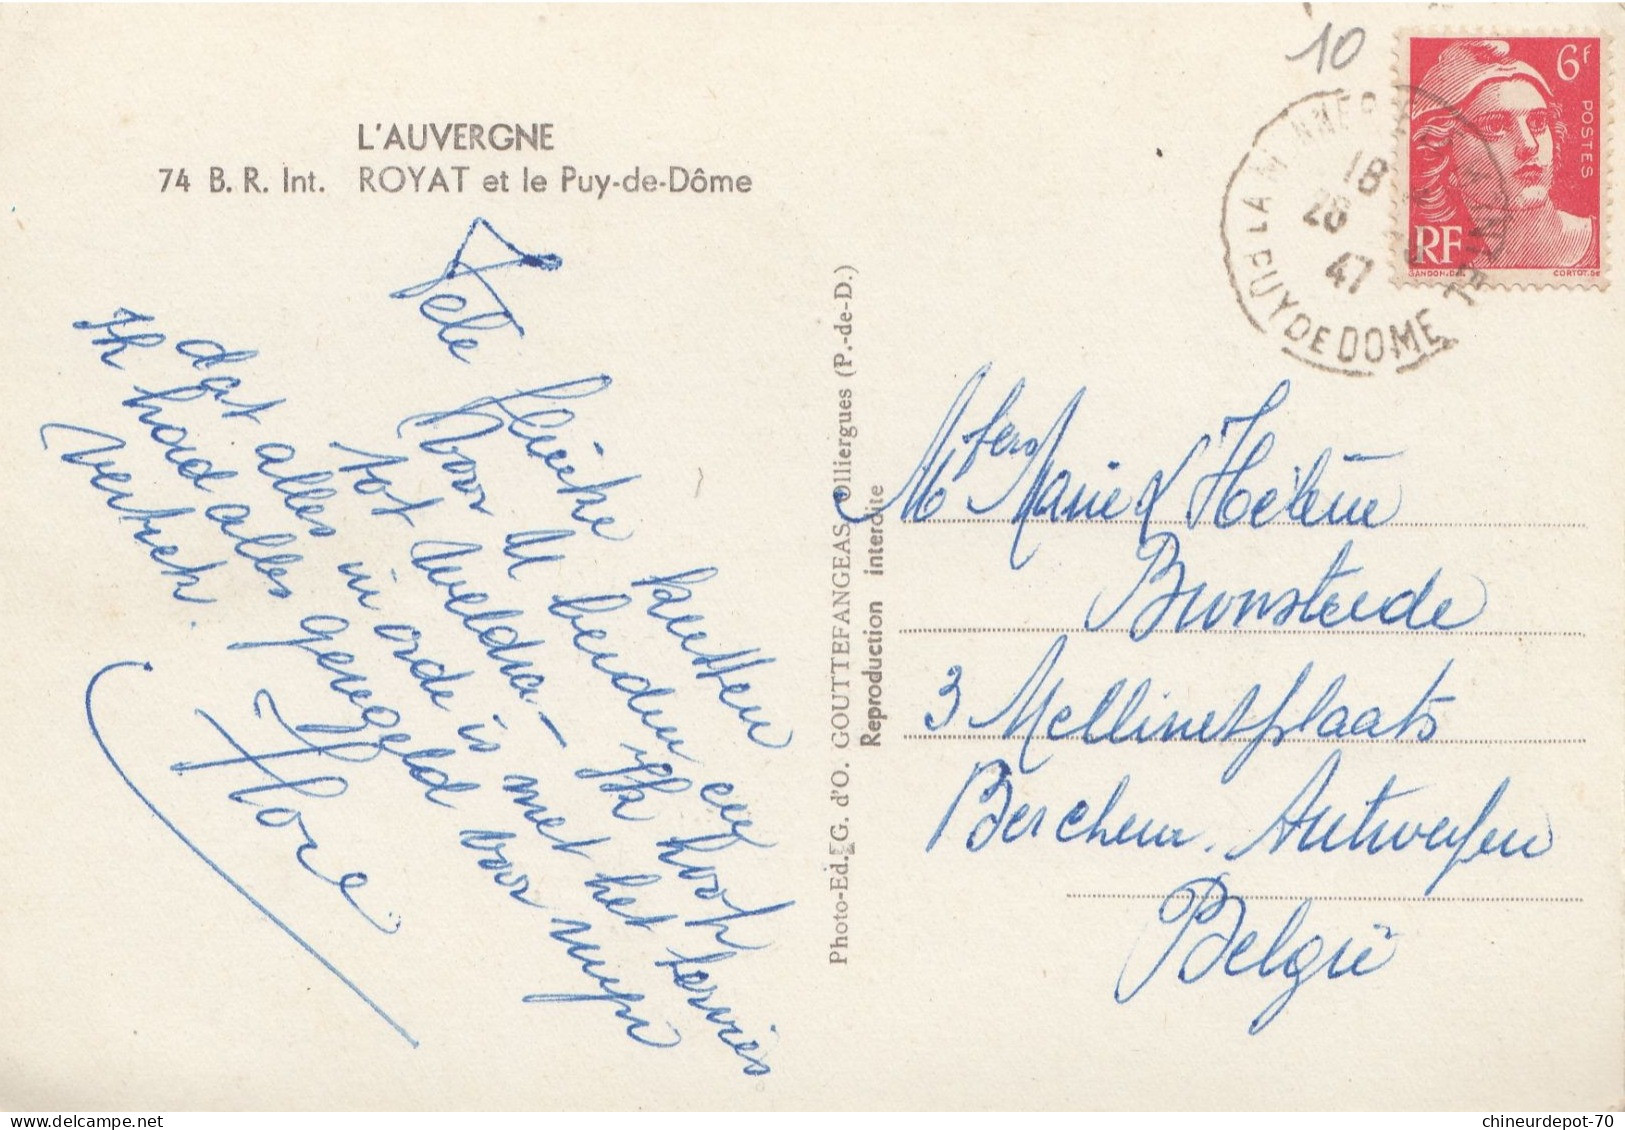 10
6F
POSTES
RF
GANDON.DEL
CORTOT.SC
18
28
47
PUY DE DOME
L'AUVERGNE
74 B. R. Int. ROYAT et le Puy-de-Dôme
Vele flinke kussen
Voor U beiden en
tot weldra - Ik hoop
dat alles in orde is met het servies
Ik had alles geregeld voor mijn
vertrek.
Flore
Photo-Ed. G. d'O. GOUTTEFANGEAS Olliergues (P.-de-D.)
Reproduction interdite
Marie & Hélène
Bronsteede
3 Mellinetplaats
Berchem. Antwerpen
België
chineurdepot-70